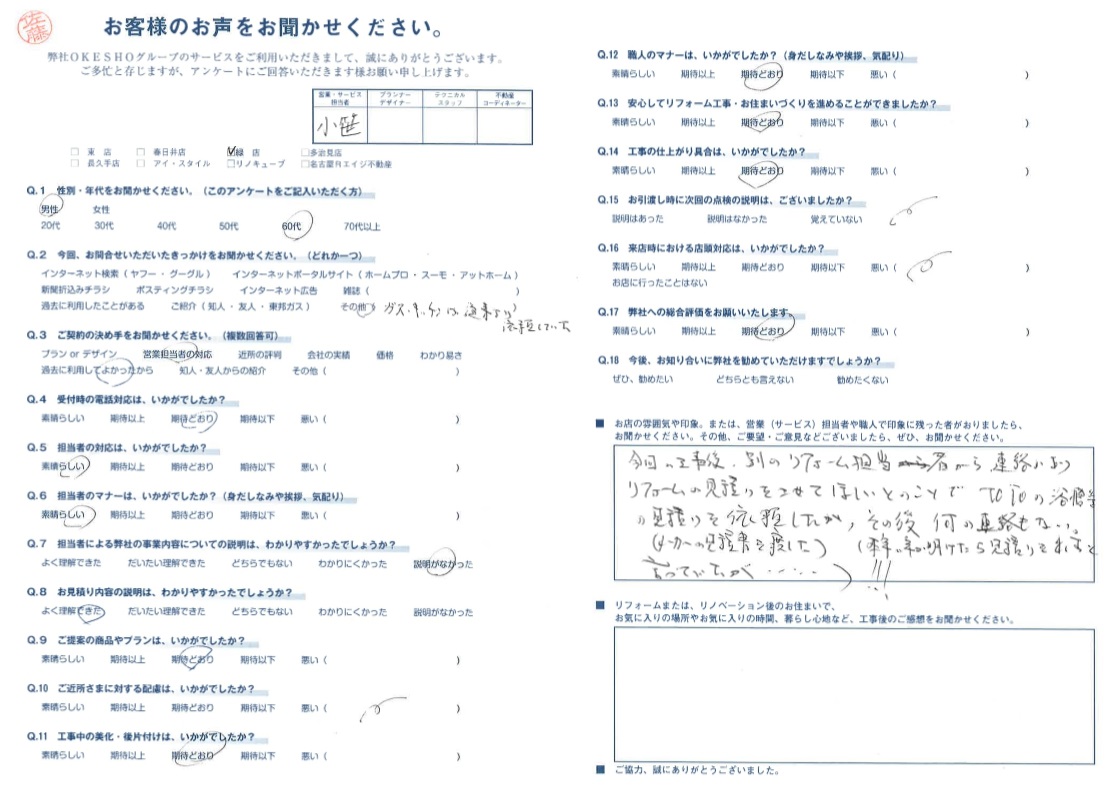 佐藤
お客様のお声をお聞かせください。
弊社OKESHOグループのサービスをご利用いただきまして、誠にありがとうございます。
ご多忙と存じますが、アンケートにご回答いただきます様お願い申し上げます。
営業・サービス担当者 プランナーデザイナー テクニカルスタッフ 不動産コーディネーター
小笹
□ 東 店 □ 春日井店 ☑緑 店 □多治見店
□ 長久手店 □ アイ・スタイル □リノキューブ □名古屋リエイジ不動産
Q.1 性別・年代をお聞かせください。（このアンケートをご記入いただく方）
男性 女性
20代 30代 40代 50代 60代 70代以上
Q.2 今回、お問合せいただいたきっかけをお聞かせください。（どれか一つ）
インターネット検索（ヤフー・グーグル） インターネットポータルサイト（ホームプロ・スーモ・アットホーム）
新聞折込みチラシ ポスティングチラシ インターネット広告 雑誌（ ）
過去に利用したことがある ご紹介（知人・友人・東邦ガス） その他（ ガス・キッチンは従来より
依頼していた
Q.3 ご契約の決め手をお聞かせください。（複数回答可）
プラン or デザイン 営業担当者の対応 近所の評判 会社の実績 価格 わかり易さ
過去に利用してよかったから 知人・友人からの紹介 その他（ ）
Q.4 受付時の電話対応は、いかがでしたか？
素晴らしい 期待以上 期待どおり 期待以下 悪い（ ）
Q.5 担当者の対応は、いかがでしたか？
素晴らしい 期待以上 期待どおり 期待以下 悪い（ ）
Q.6 担当者のマナーは、いかがでしたか？（身だしなみや挨拶、気配り）
素晴らしい 期待以上 期待どおり 期待以下 悪い（ ）
Q.7 担当者による弊社の事業内容についての説明は、わかりやすかったでしょうか？
よく理解できた だいたい理解できた どちらでもない わかりにくかった 説明がなかった
Q.8 お見積り内容の説明は、わかりやすかったでしょうか？
よく理解できた だいたい理解できた どちらでもない わかりにくかった 説明がなかった
Q.9 ご提案の商品やプランは、いかがでしたか？
素晴らしい 期待以上 期待どおり 期待以下 悪い（ ）
Q.10 ご近所さまに対する配慮は、いかがでしたか？
素晴らしい 期待以上 期待どおり 期待以下 悪い（ ）
Q.11 工事中の美化・後片付けは、いかがでしたか？
素晴らしい 期待以上 期待どおり 期待以下 悪い（ ）
Q.12 職人のマナーは、いかがでしたか？（身だしなみや挨拶、気配り）
素晴らしい 期待以上 期待どおり 期待以下 悪い（ ）
Q.13 安心してリフォーム工事・お住まいづくりを進めることができましたか？
素晴らしい 期待以上 期待どおり 期待以下 悪い（ ）
Q.14 工事の仕上がり具合は、いかがでしたか？
素晴らしい 期待以上 期待どおり 期待以下 悪い（ ）
Q.15 お引渡し時に次回の点検の説明は、ございましたか？
説明はあった 説明はなかった 覚えていない
Q.16 来店時における店頭対応は、いかがでしたか？
素晴らしい 期待以上 期待どおり 期待以下 悪い（ ）
お店に行ったことはない
Q.17 弊社への総合評価をお願いいたします。
素晴らしい 期待以上 期待どおり 期待以下 悪い（ ）
Q.18 今後、お知り合いに弊社を勧めていただけますでしょうか？
ぜひ、勧めたい どちらとも言えない 勧めたくない
■ お店の雰囲気や印象。または、営業（サービス）担当者や職人で印象に残った者がおりましたら、
お聞かせください。その他、ご要望・ご意見などございましたら、ぜひ、お聞かせください。
今回の工事後、別のリフォーム担当者から連絡があり
リフォームの見積りをさせてほしいとのことで TOTOの浴槽等
の見積りを依頼したが、その後何の連絡もない。
（メーカーの見積書を渡した）（年が明けたら見積りをすると
言っていたが……）!!!
■ リフォームまたは、リノベーション後のお住まいで、
お気に入りの場所やお気に入りの時間、暮らし心地など、工事後のご感想をお聞かせください。
■ ご協力、誠にありがとうございました。